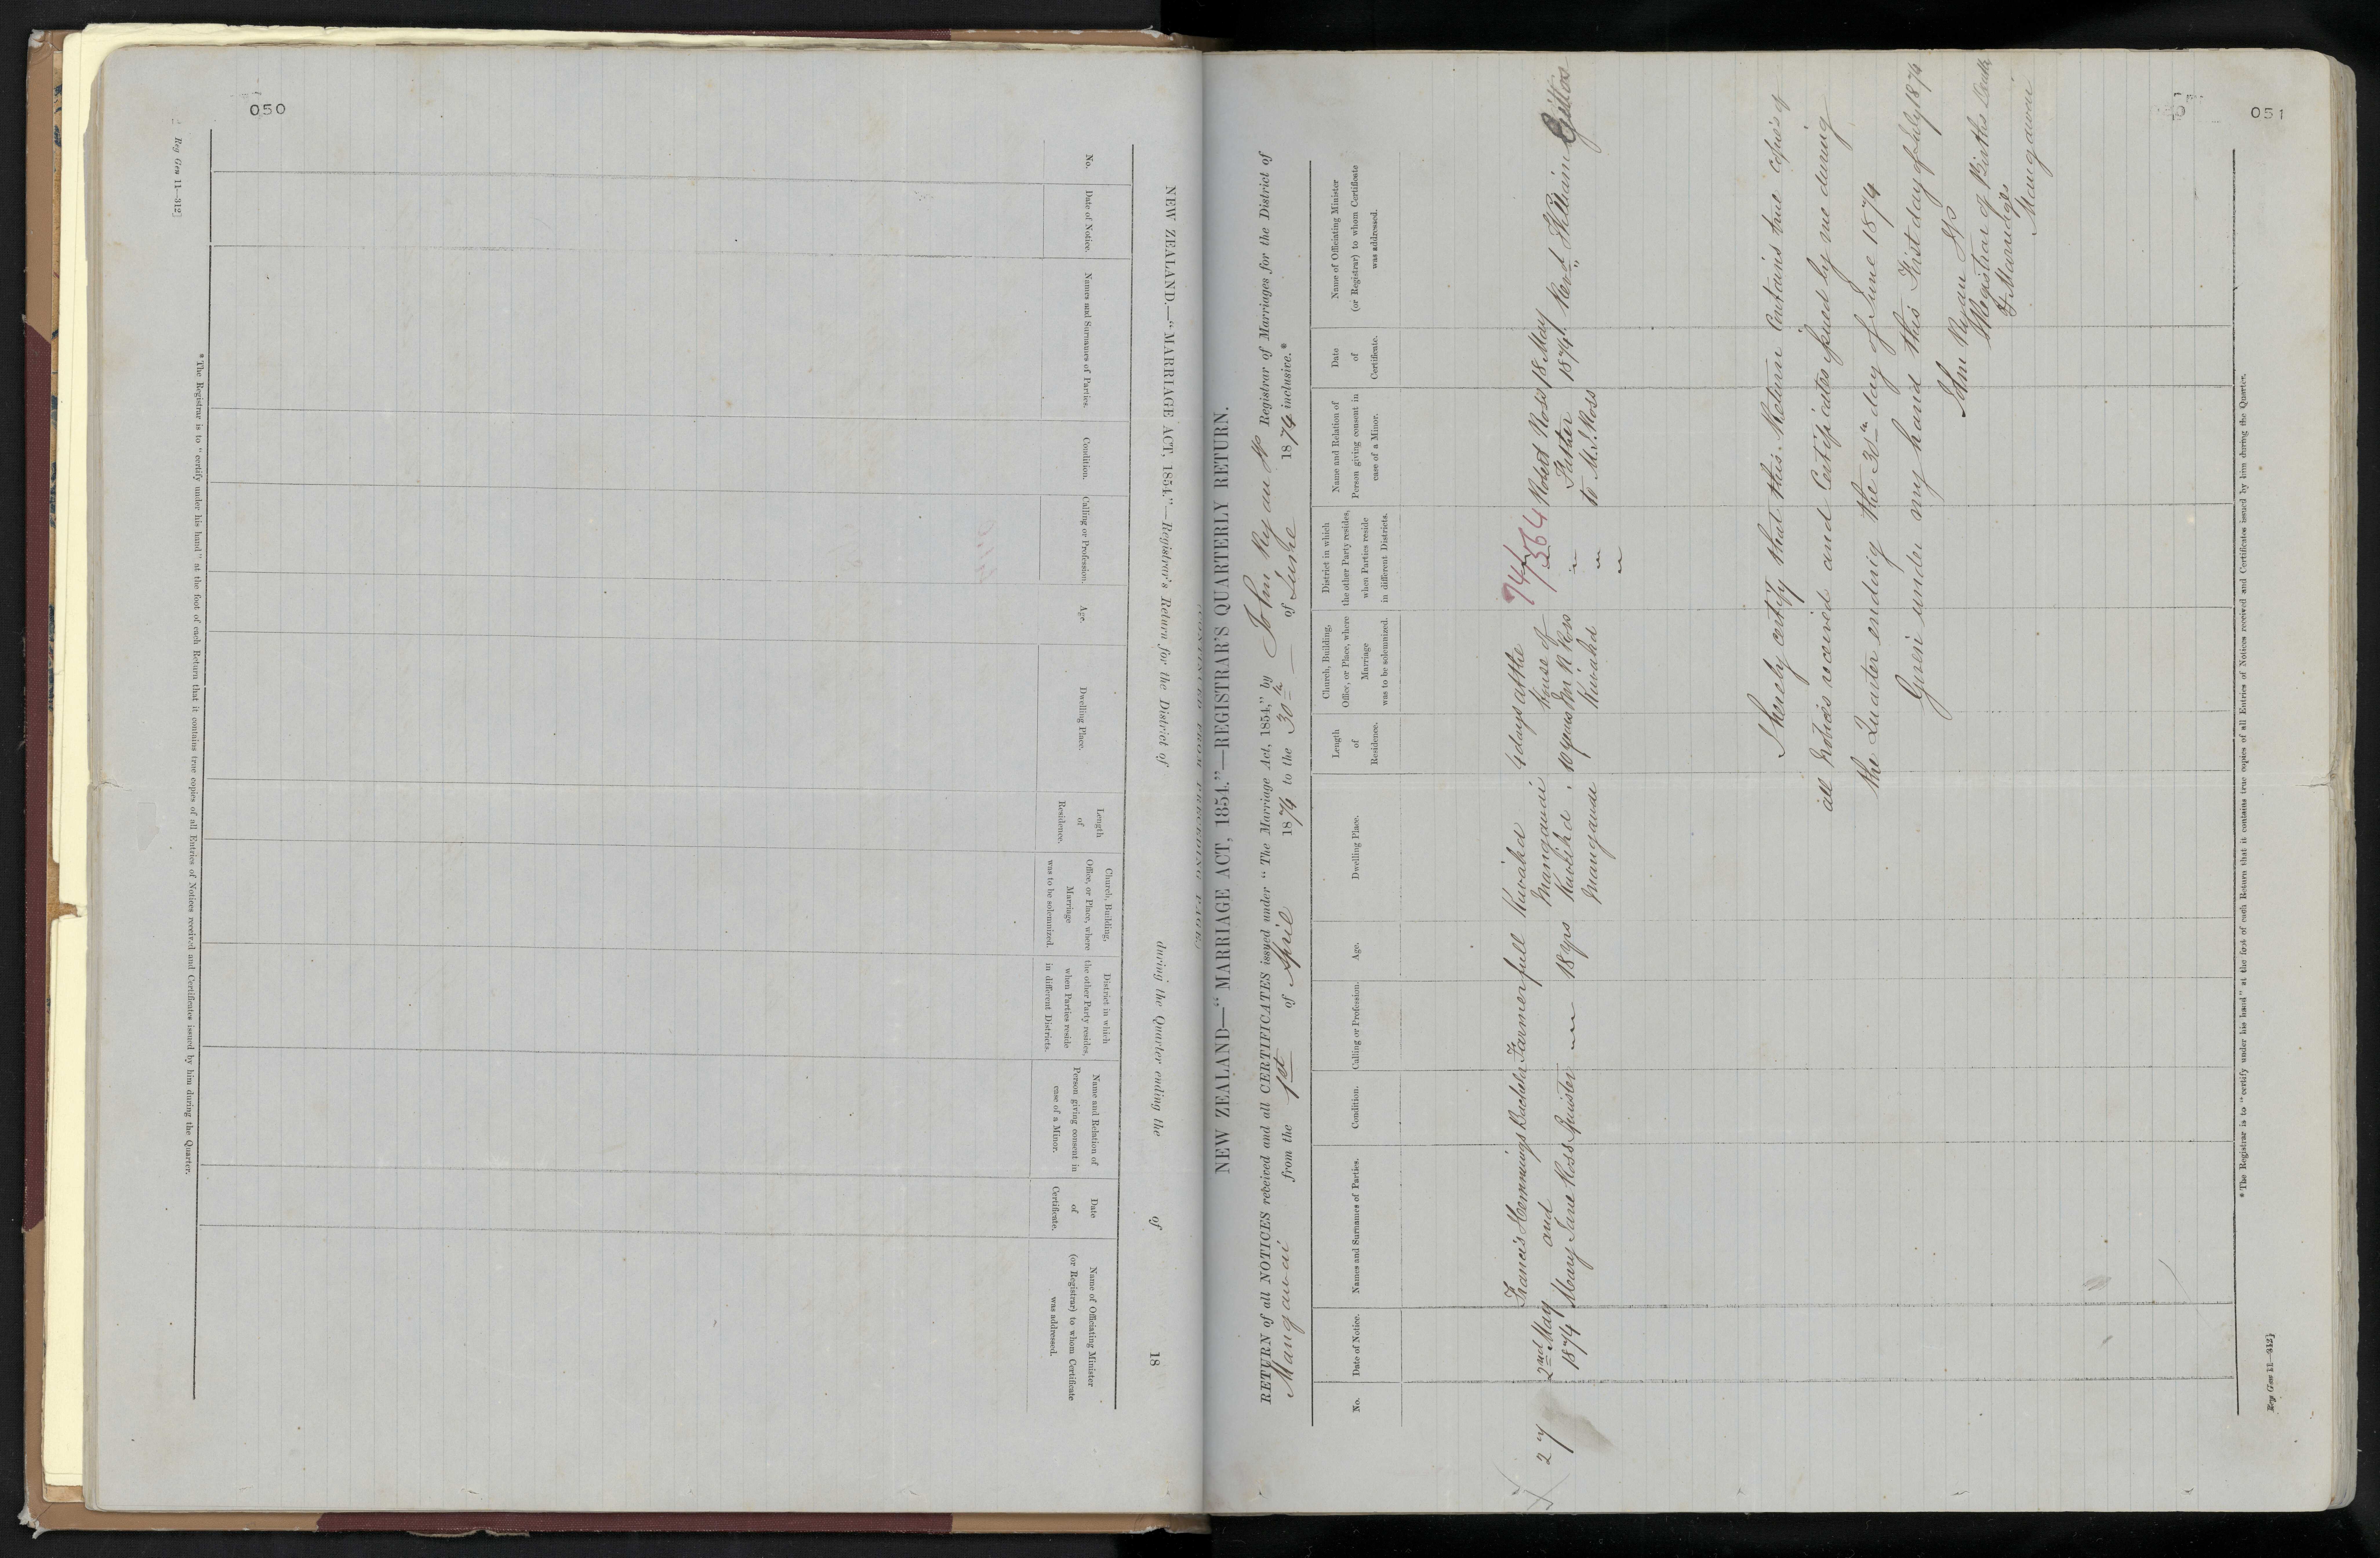 050
NEW ZEALAND.—"MARRIAGE ACT, 1854."—Registrar's Return for the District of during the Quarter ending the of 18
No.
Date of Notice.
Names and Surnames of Parties.
Condition.
Calling or Profession.
Age.
Dwelling Place.
Length
of
Residence.
Church, Building,
Office, or Place, where
Marriage
was to be solemnized.
District in which
the other Party resides,
when Parties reside
in different Districts.
Name and Relation of
Person giving consent in
case of a Minor.
Date
of
Certificate.
Name of Officiating Minister
(or Registrar) to whom Certificate
was addressed.
* The Registrar is to "certify under his hand" at the foot of each Return that it contains true copies of all Entries of Notices received and Certificates issued by him during the Quarter.
Reg Gen 11—312]
051
NEW ZEALAND—"MARRIAGE ACT, 1854."—REGISTRAR'S QUARTERLY RETURN.
RETURN of all NOTICES received and all CERTIFICATES issued under "The Marriage Act, 1854," by John Ryan JP Registrar of Marriages for the District of
Mangawai from the 1st of April 1874 to the 30th of June 1874 inclusive.*
No.
Date of Notice.
Names and Surnames of Parties.
Condition.
Calling or Profession.
Age.
Dwelling Place.
Length
of
Residence.
Church, Building,
Office, or Place, where
Marriage
was to be solemnized.
District in which
the other Party resides,
when Parties reside
in different Districts.
Name and Relation of
Person giving consent in
case of a Minor.
Date
of
Certificate.
Name of Officiating Minister
(or Registrar) to whom Certificate
was addressed.
27
2nd May
1874
Francis Hemmings
and
Mary Jane Ross
Bachelor
Spinster
Farmer
full
18 yrs
Mangawai
Mangawai
4 days
10 years
at the
house of
Mr R Ross
74/1564
Robert Ross
Father
to M.J. Ross
18 May
1874
Revd William Gittos
I hereby certify that this Return contains true copies of
all Notices received and Certificates issued by me during
the Quarter ending the 30th day of June 1874
Given under my hand this First day of July 1874
John Ryan JP
Registrar of Births Deaths
& Marriages
Mangawai
* The Registrar is to "certify under his hand" at the foot of each Return that it contains true copies of all Entries of Notices received and Certificates issued by him during the Quarter.
Reg Gen 11—312]